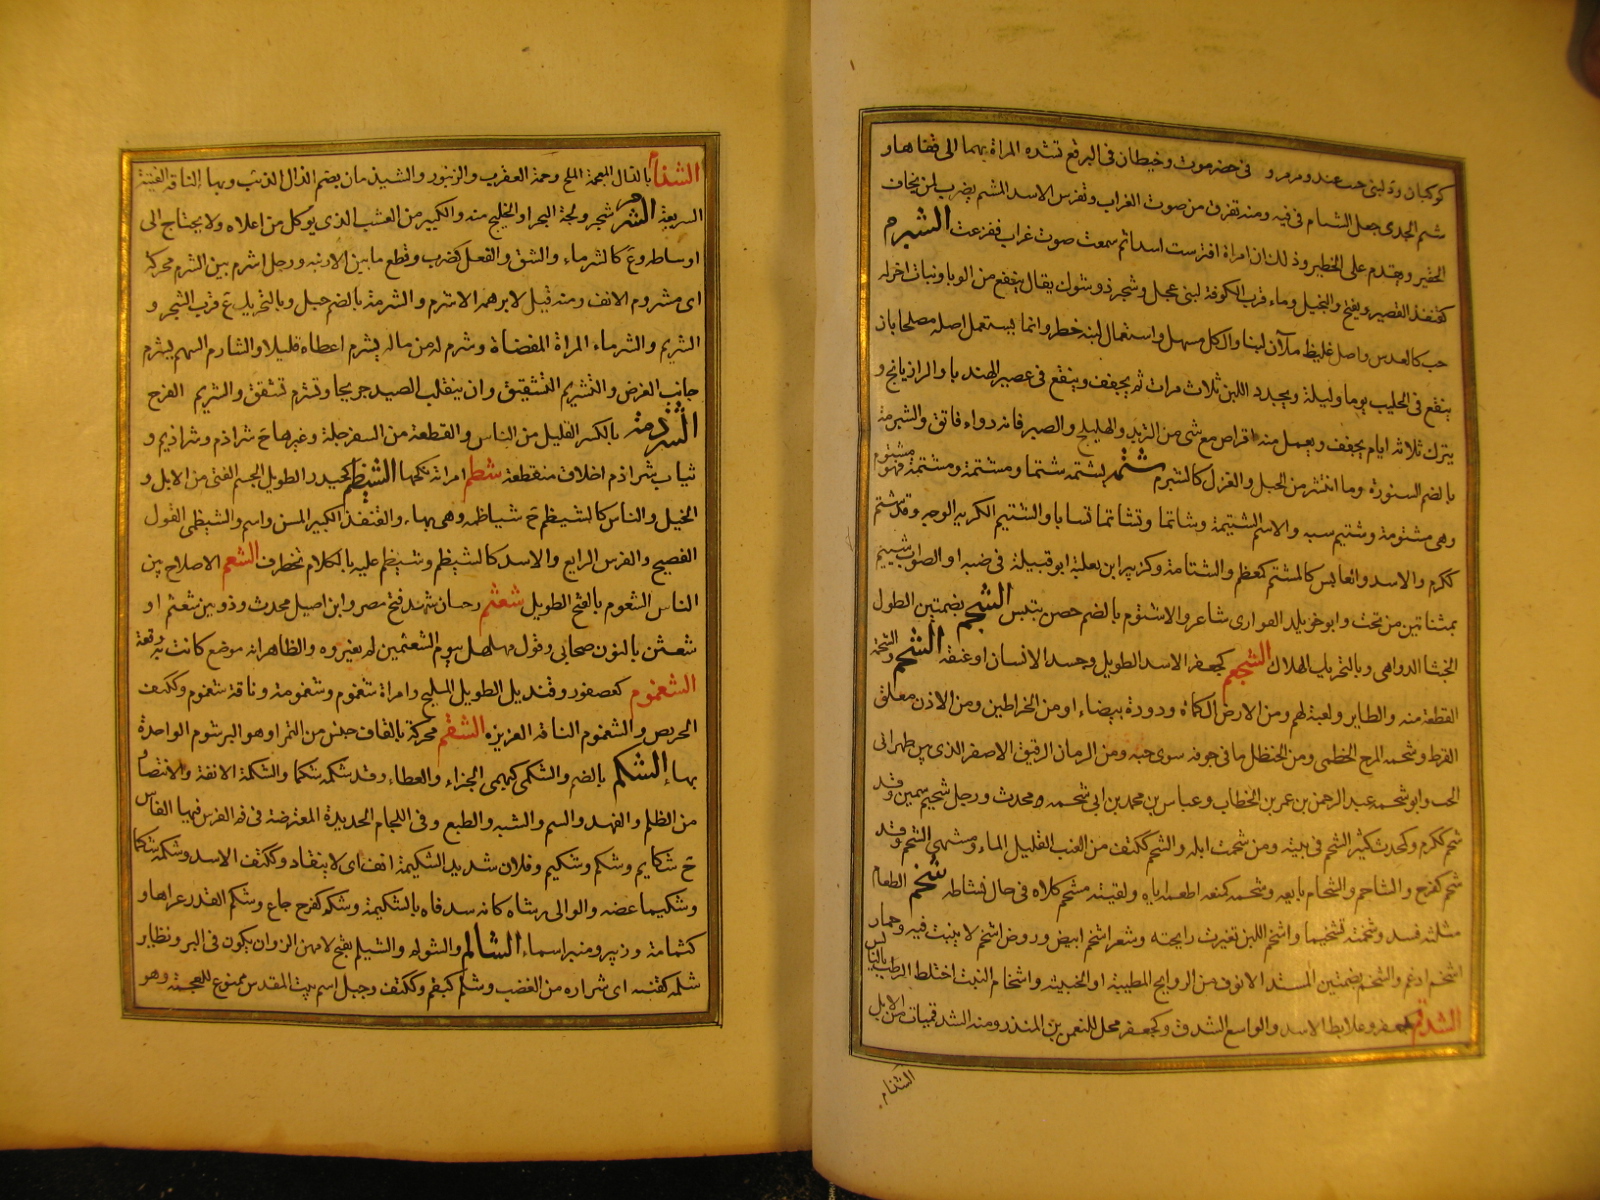 كوكبان وة لبنى حب عند ومرمر و في حضرموت وخيطان في البرقع تشده المراة بهما الى قفاها و
شبم الجدى جعل الشبام في فيه ومنه تفرق من صوت الغراب وتفرس الاسد المشبم يضرب لمن يخاف
الحقير ويقدم على الخطير وذلك ان امراة افترست اسدا ثم سمعت صوت غراب ففزعت الشبرم
كقنفذ القصير ويفتح والبخيل وماء قرب الكوفة لبنى عجل وشجر ذو شوك يقال ينفع من الوبا ونبات اخر له
حب كالعدس واصل غليظ ملآن لبنا والكل مسهل واستعمال لبنه خطر وانما يستعمل اصله مصلحا بان
ينقع في الحليب يوما وليلة ويجدد اللبن ثلاث مرات ثم يجفف وينقع في عصير الهندبا والرازيانج و
يترك ثلاثة ايام يجفف ويعمل منه اقراص مع شى من التربد والهليلج والصبر فانه دواء فائق والشبرمة
بالضم السنورة وما انتثر من الحبل والغزل كالشبرم شتمه يشتمه شتما ومشتمة ومشتمة فهو مشتوم
وهى مشتومة وشتيم سبه والاسم الشتيمة وشاتما وتشاتما تسابا والشتيم الكريه الوجه وقد شتم
ككرم والاسد العابس كالمشتم كمعظم والشتامة وكزبير ابن ثعلبة ابو قبيلة في ضبه او الصواب شييم
بمثناتين من تحت وابو خويلد الفوارى شاعر والاشتوم بالضم حصن بتنيس الشجم بضمتين الطول
الخبثا الدواهى وبالتحريك الهلاك الشجعم كجعفر الاسد الطويل وجسد الانسان او عنقه الشحم والشحمة
القطعة منه والطاير ولعبة لهم ومن الارض الكماة ودودة بيضاء او من الخراطين ومن الاذن معلق
القرط وشحمة المرج الخطمى ومن الحنظل ما في جوفه سوى حبه ومن الرمان الرقيق الاصفر الذى بين ظهرانى
الحب وابو شحمه عبد الرحمن بن عمر بن الخطاب وعباس بن محمد بن ابى شحمه محدث ورجل شحيم سمين وقد
شحم ككرم وكمحدث كثير الشحم في بيته ومن شحمت ابله والشحم ككتف من العنب القليل الماء ومشتهى الشحم وقد
شحم كفرح والشاحم والشحام بايعه وشحمه كمنعه اطعمه اياه ولقيته مشحم كلاه في حال نشاطه شخم الطعام
مثلثة فسد وشخمته تشخيما واشخم اللبن تغيرت رايحته وشعر اشخم ابيض وروض اشخم لا ينبت فيه وحمار
اشخم ادغم والشخم بضمتين المستد الانوف من الروايح الطيبة او الخبيثة واشخام النبت اختلط الرطب باليابس
الشدقم كجعفر وعلابط الاسد والواسع الشدق وكجعفر فحل للنعمن بن المنذر ومنه الشدقميات من الابل
الشذام
الشذام بالذال المعجمة الملح وحمة العقرب والزنبور والشيذمان بضم الذال الذيب وبها الناقة الفتية
السريعة الشرم شجر ولجة البحر او الخليج منه والكبير من العشب الذى يوكل من اعلاه ولا يحتاج الى
اوساطه وع كالشرماء والشق والفعل كضرب وقطع ما بين الارنبه ورجل اشرم بين الشرم محركة
اى مشروم الانف ومنه قيل لابرهه الاشرم والشرمة بالضم جبل وبالتحريك ع قرب الشجر و
الشريم والشرماء المراة المفضاة وشرم له من ماله يشرم اعطاه قليلا والشارم السهم يشرم
جانب الغرض والتشريم التشقيق وان ينفلت الصيد جريحا وتشرم تشقق والشريم الفرج
الشرذمة بالكسر القليل من الناس والقطعة من السفرجلة وغيرها ج شراذم وشراذيم و
ثياب شراذم اخلاق منقطعة شطم امراته نكحها الشيظم كحيدر الطويل الجسم الفتى من الابل و
الخيل والناس كالشيظمى ج شياظمة وهى بهاء والقنفذ الكبير المسن واسم والشيظمى القول
الفصيح والفرس الرايع والاسد كالشيظم وشيظم عليه بالكلام تخطرف الشعم الاصلاح بين
الناس الشعوم بالفتح الطويل شعثم رحسان شهد فتح مصر وابن اصيل محدث وذوبين شعثم او
شعثن بالنون صحابى وقول مهلهل بيوم الشعثمين لم يفسروه والظاهر انه موضع كانت به وقعة
الشغموم كعصفور وقنديل الطويل المليح وامراة شغموم وشغمومة وناقة شغموم وككتف
الحريص والشغموم الناقة الغزيرة الشقم محركة بالقاف جنس من التمر او هو البرشوم الواحدة
بهاء الشكم بالضم والشكمى كبهمى الجزاء والعطاء وقد شكمه شكما والشكمة الانفة والانتصار
من الظلم والفهد والسم والشبه والطبع وفي اللجام الحديدة المعترضة في فم الفرس فيها الفاس
ج شكايم وشكم وشكيم وفلان شديد الشكيمة انف اى لا ينقاد وككتف الاسد وشكمه شكما
وشكيما عضه والوالى رشاه كانه سد فاه بالشكيمة وشكم كفرح جاع وشكم القدر عراها و
كثمامة وزبير ومنبر اسماء الشالم والشولم والشيلم بفتح لامهن الزوان يكون في البر ونظاير
شلمه كقنبه اى شراره من الغضب وشلم كبقم وككتف وجبل اسم بيت المقدس ممنوع للعجمة وهو